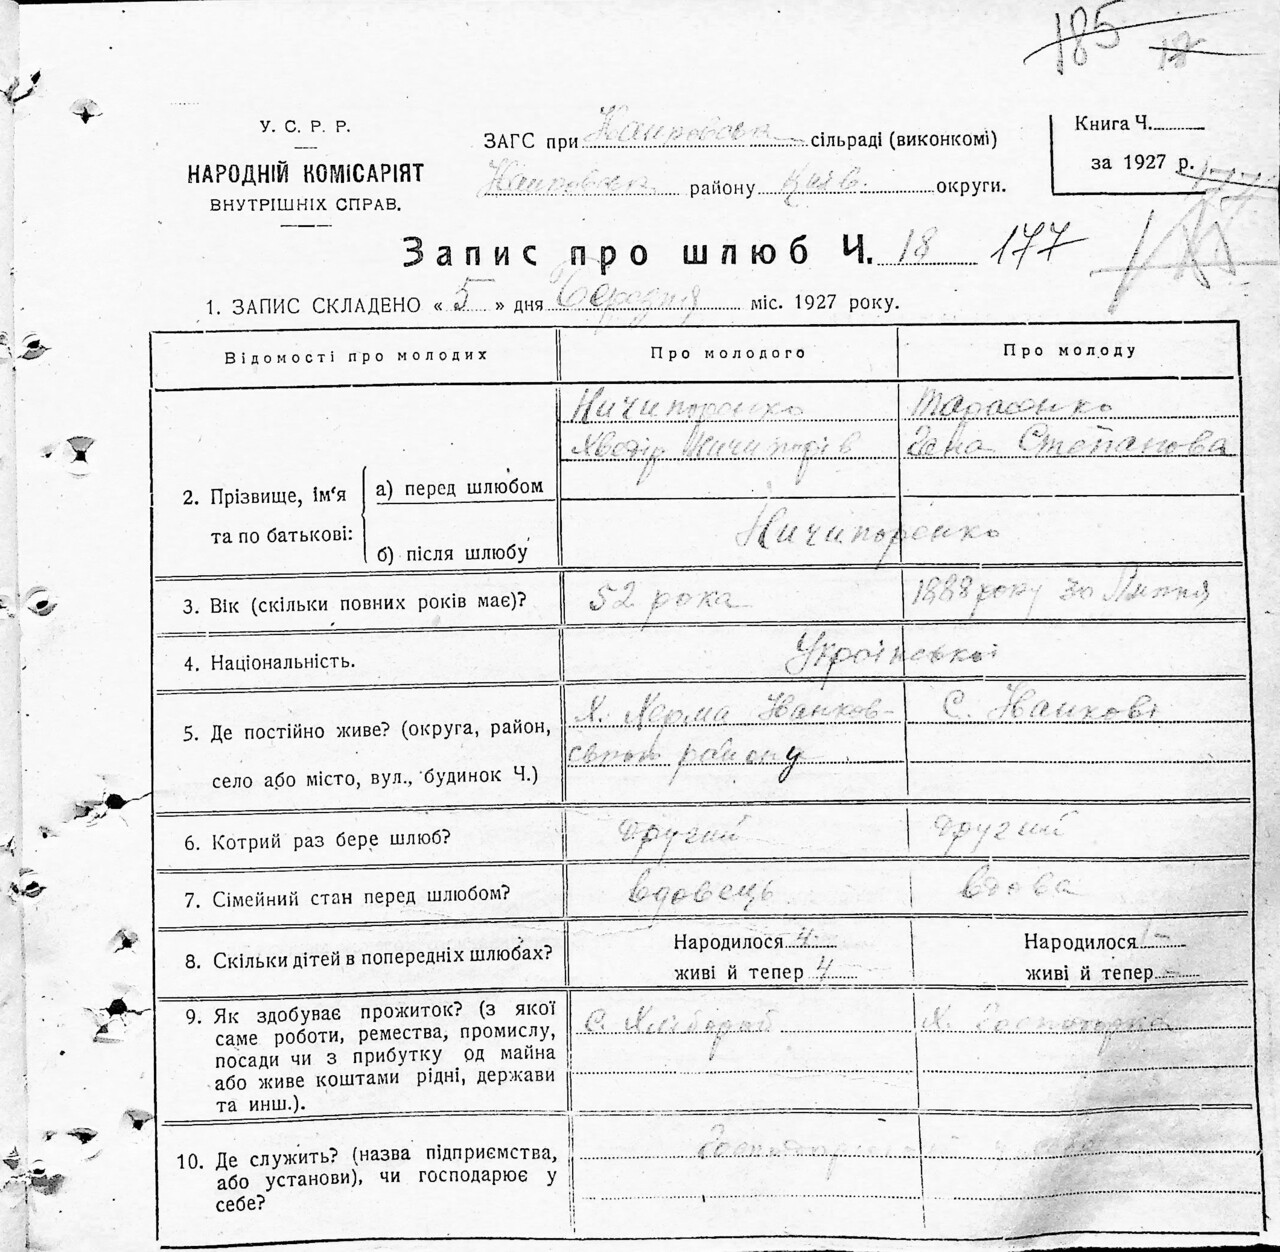 185 18
У. С. Р. Р.
НАРОДНІЙ КОМІСАРІЯТ
ВНУТРІШНІХ СПРАВ.
ЗАГС при сільраді (виконкомі)
району Київ. округи.
Книга Ч.
за 1927 р.
177
Запис про шлюб Ч. 18 177
1. ЗАПИС СКЛАДЕНО « 5 » дня міс. 1927 року.
Відомості про молодих Про молодого Про молоду
2. Прізвище, ім'я та по батькові:
а) перед шлюбом
Ничипоренко
Хведір Ничипорів
Тарасенко
Степанова
б) після шлюбу
Ничипоренко
3. Вік (скільки повних років має)? 52 рока 1888 року 30 Липня
4. Національність. Української
5. Де постійно живе? (округа, район,
село або місто, вул., будинок Ч.)
Х. Іванков-
ського району
С. Іванкові
6. Котрий раз бере шлюб? другий другий
7. Сімейний стан перед шлюбом? вдовець вдова
8. Скільки дітей в попередніх шлюбах?
Народилося 4
живі й тепер 4
Народилося -
живі й тепер -
9. Як здобуває прожиток? (з якої
саме роботи, ремества, промислу,
посади чи з прибутку од майна
або живе коштами рідні, держави
та инш.).
С. Хлібороб
Х. Господарка
10. Де служить? (назва підприємства,
або установи), чи господарює у
себе?